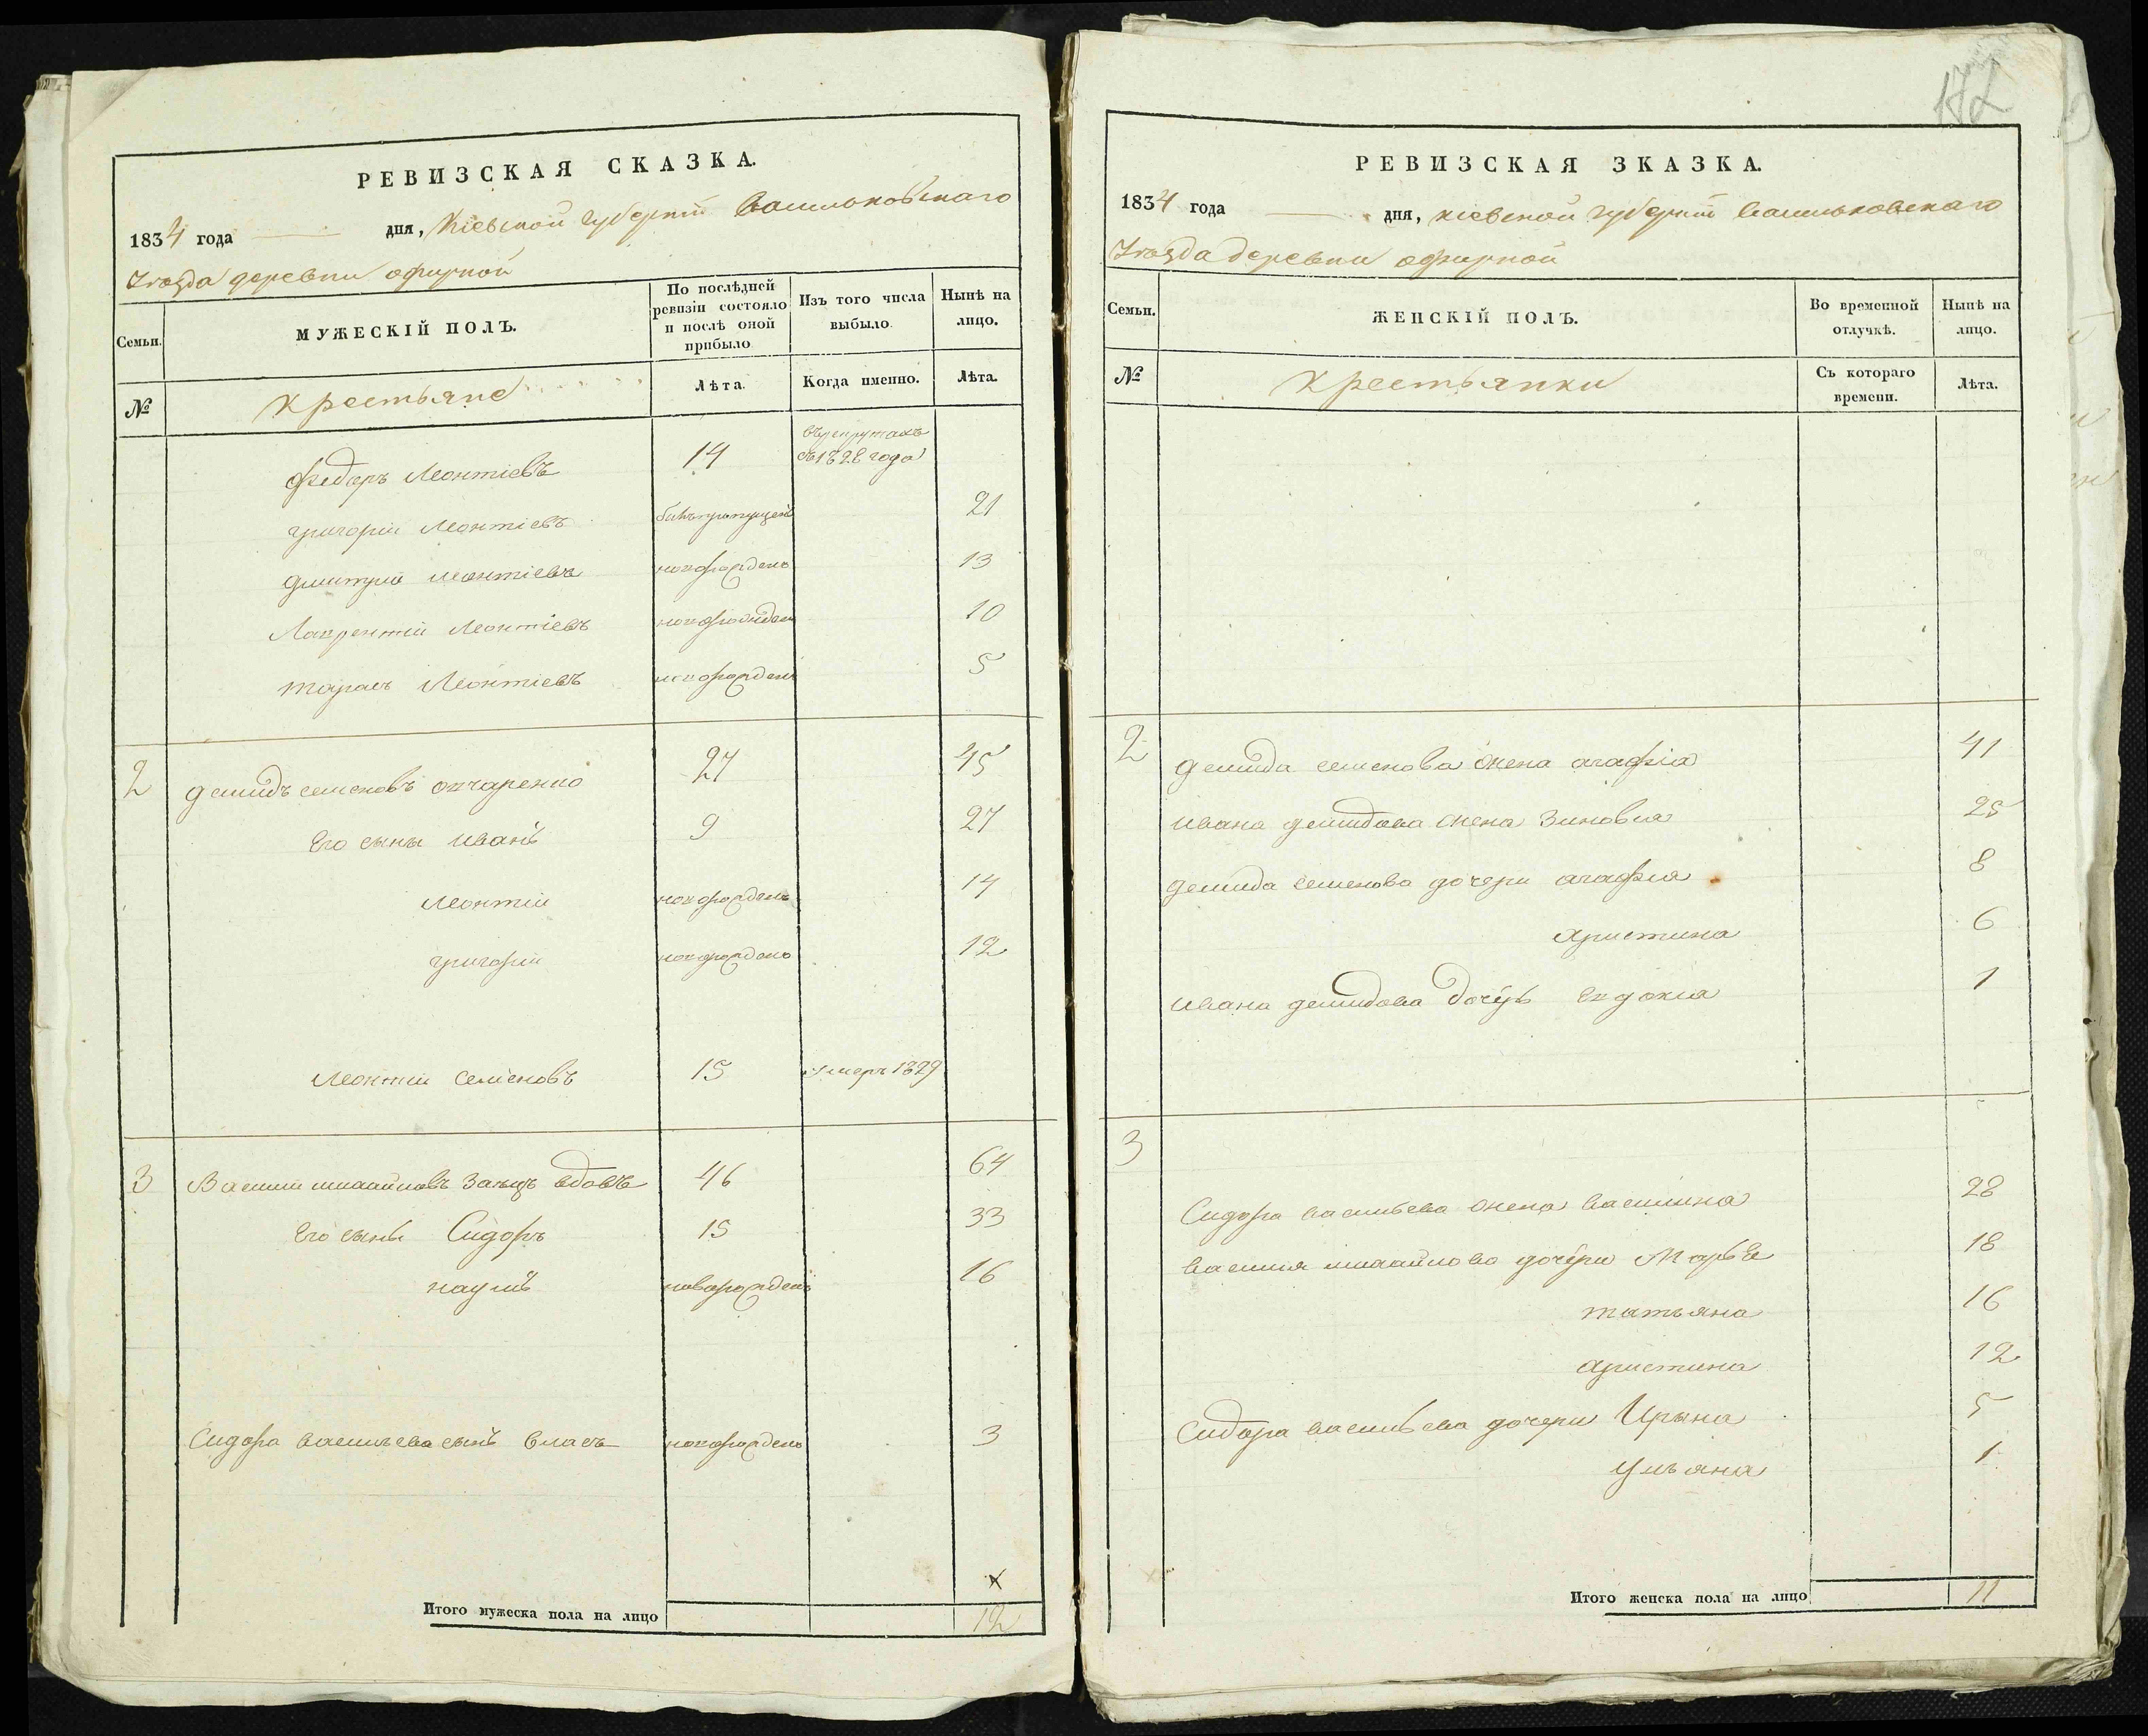 172
РЕВИЗСКАЯ СКАЗКА.
1834 года дня, Кіевской губерніи Васильковскаго
Уезда деревни офирной
Семьи.
МУЖЕСКІЙ ПОЛЪ.
По послѣдней ревизіи состояло и послѣ оной прибыло
Изъ того числа выбыло
Нынѣ на лицо.
№
крестьяне
Лѣта.
Когда именно.
Лѣта.
федоръ Леонтіевъ 14 въ рекрутахъ съ 1828 года
григорій Леонтіевъ былъ пропущенъ 21
дмитрій Леонтіевъ новорожденъ 13
Лаврентій Леонтіевъ новорожденъ 10
тарасъ Леонтіевъ новорожденъ 5
2 демидъ семеновъ овчаренко 27 45
Его сыны иванъ 9 27
Леонтій новорожденъ 14
григорій новорожденъ 12
Леонтій семеновъ 15 умеръ 1829
3 Василій михайловъ Заяцъ вдовъ 46 64
Его сыны Сидоръ 15 33
наумъ новорожденъ 16
Сидора васильева сынъ власъ новорожденъ 3
х
Итого мужеска пола на лицо 12
РЕВИЗСКАЯ ЗКАЗКА.
1834 года дня, кіевской губерніи васильковскаго
Уезда деревни офирной
Семьи.
ЖЕНСКІЙ ПОЛЪ.
Во временной отлучкѣ.
Нынѣ на лицо.
№
крестьянки
Съ котораго времени.
Лѣта.
2 демида семенова жена агафіа 41
ивана демидова жена Зиновиа 25
демида семенова дочери агафиа 8
христина 6
ивана демидова дочерь Евдокиа 1
3
Сидора васильева жена василина 28
василия михайлова дочери Марья 18
татьяна 16
христина 12
Сидора васильева дочери Ирына 5
ульяна 1
Итого женска пола на лицо 11